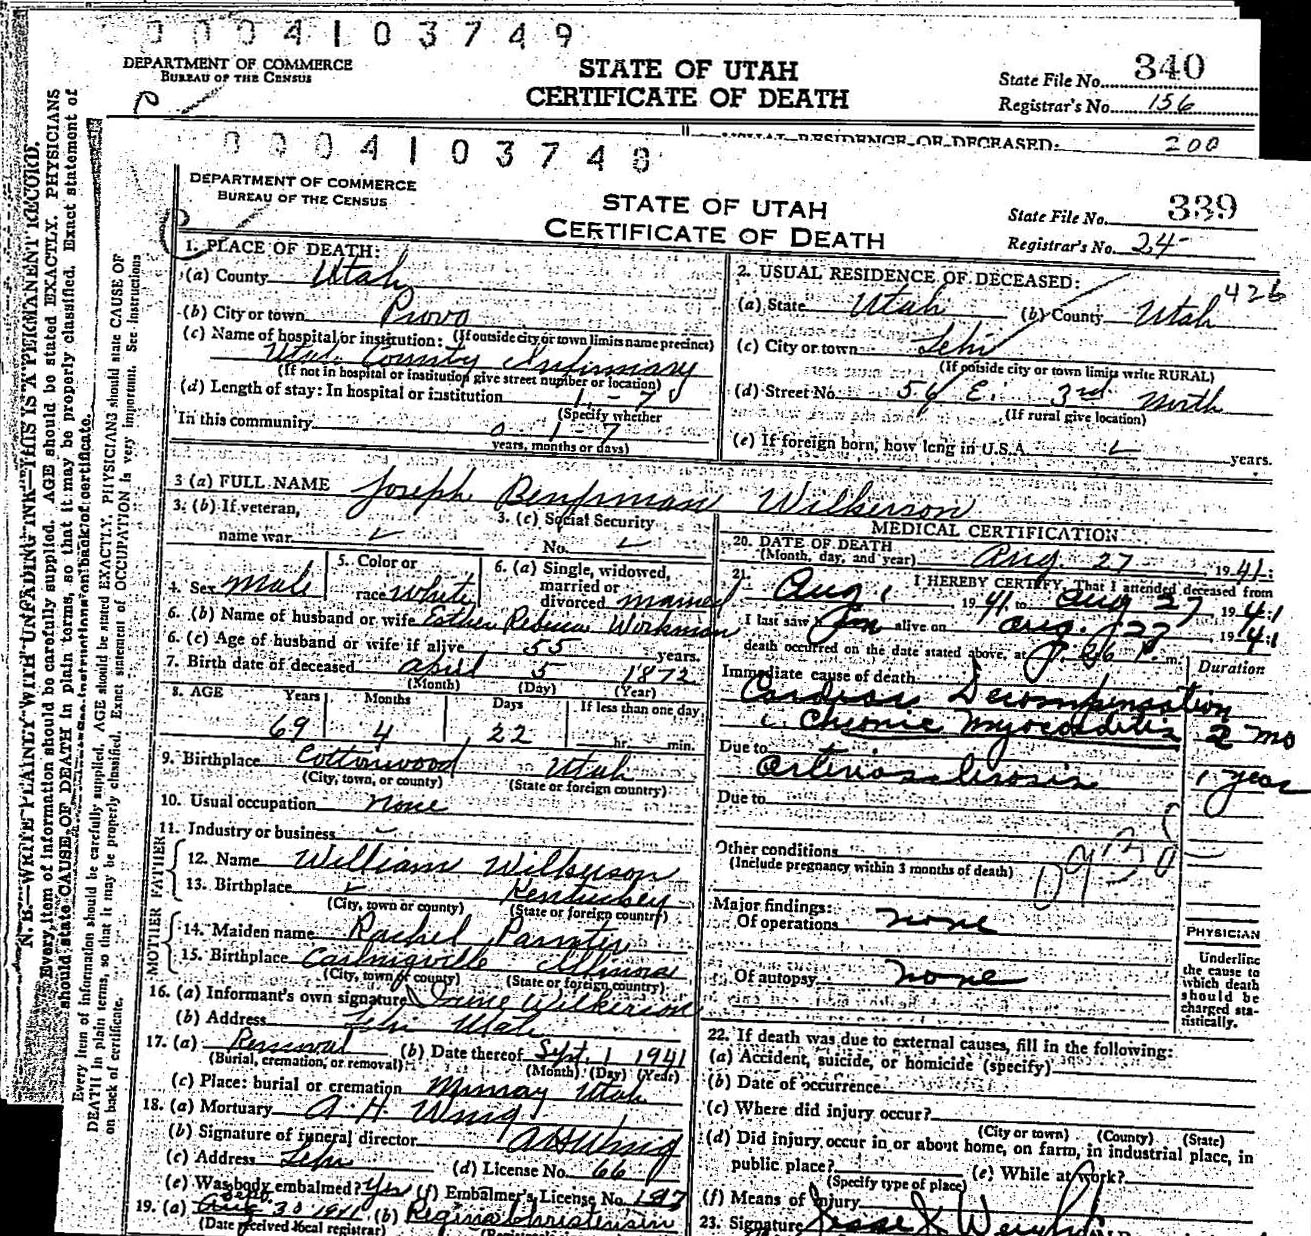 0004103749
DEPARTMENT OF COMMERCE
BUREAU OF THE CENSUS
STATE OF UTAH
CERTIFICATE OF DEATH
State File No. 340
Registrar's No. 156
USUAL RESIDENCE OF DECEASED:
200
0004103748
DEPARTMENT OF COMMERCE
BUREAU OF THE CENSUS
STATE OF UTAH
CERTIFICATE OF DEATH
State File No. 339
Registrar's No. 24
N. B.—WRITE PLAINLY WITH UNFADING INK—THIS IS A PERMANENT RECORD.
Every item of information should be carefully supplied. AGE should be stated EXACTLY. PHYSICIANS
should state CAUSE OF DEATH in plain terms, so that it may be properly classified. Exact statement of
Every item of information should be carefully supplied. AGE should be stated EXACTLY. PHYSICIANS should state CAUSE OF
DEATH in plain terms, so that it may be properly classified. Exact statement of OCCUPATION is very important. See Instructions
on back of certificate.
1. PLACE OF DEATH:
(a) County Utah
(b) City or town Provo
(If outside city or town limits name precinct)
(c) Name of hospital or institution:
Utah County Infirmary
(If not in hospital or institution give street number or location)
(d) Length of stay: In hospital or institution 1-7
(Specify whether
In this community 0-1-7
years, months or days)
2. USUAL RESIDENCE OF DECEASED:
426
(a) State Utah (b) County Utah
(c) City or town Lehi
(If outside city or town limits write RURAL)
(d) Street No. 54 E. 3rd North
(If rural give location)
(e) If foreign born, how long in U.S.A. years.
3 (a) FULL NAME Joseph Benjiman Wilkerson
3. (b) If veteran,
name war
3. (c) Social Security
No.
4. Sex male
5. Color or
race white
6. (a) Single, widowed,
married or
divorced married
6. (b) Name of husband or wife Esther Rebecca Workman
6. (c) Age of husband or wife if alive 55 years.
7. Birth date of deceased April 5 1872
(Month) (Day) (Year)
8. AGE Years Months Days If less than one day
69 4 22 hr. min.
9. Birthplace Cottonwood Utah
(City, town, or county) (State or foreign country)
10. Usual occupation none
11. Industry or business
FATHER
12. Name William Wilkerson
13. Birthplace Kentuckey
(City, town or county) (State or foreign country)
MOTHER
14. Maiden name Rachel
15. Birthplace Illinois
(City, town or county) (State or foreign country)
16. (a) Informant's own signature Wilkerson
(b) Address Lehi Utah
17. (a) Removal (b) Date thereof Sept. 1 1941
(Burial, cremation, or removal) (Month) (Day) (Year)
(c) Place: burial or cremation Murray Utah
18. (a) Mortuary A. H. Wing
(b) Signature of funeral director A H Wing
(c) Address Lehi (d) License No. 66
(e) Was body embalmed? Yes (f) Embalmer's License No. 197
19. (a) Sept. Aug 30 1941 (b) Regina Christensen
(Date received local registrar)
MEDICAL CERTIFICATION
20. DATE OF DEATH
(Month, day, and year) Aug. 27, 1941
21. I HEREBY CERTIFY, That I attended deceased from
Aug 1 1941 to Aug 27 1941
I last saw him alive on Aug. 27, 1941
death occurred on the date stated above, at P. m.
Duration
Immediate cause of death
Cardiac Decompensation
Chronic myocarditis 2 mo
Due to
Arteriosclerosis 1 year
Due to
Other conditions
(Include pregnancy within 3 months of death)
Major findings:
Of operations none
Of autopsy none
PHYSICIAN
Underline
the cause to
which death
should be
charged sta-
tistically.
22. If death was due to external causes, fill in the following:
(a) Accident, suicide, or homicide (specify)
(b) Date of occurrence
(c) Where did injury occur?
(City or town) (County) (State)
(d) Did injury occur in or about home, on farm, in industrial place, in
public place? (e) While at work?
(Specify type of place)
(f) Means of injury
23. Signature Jesse